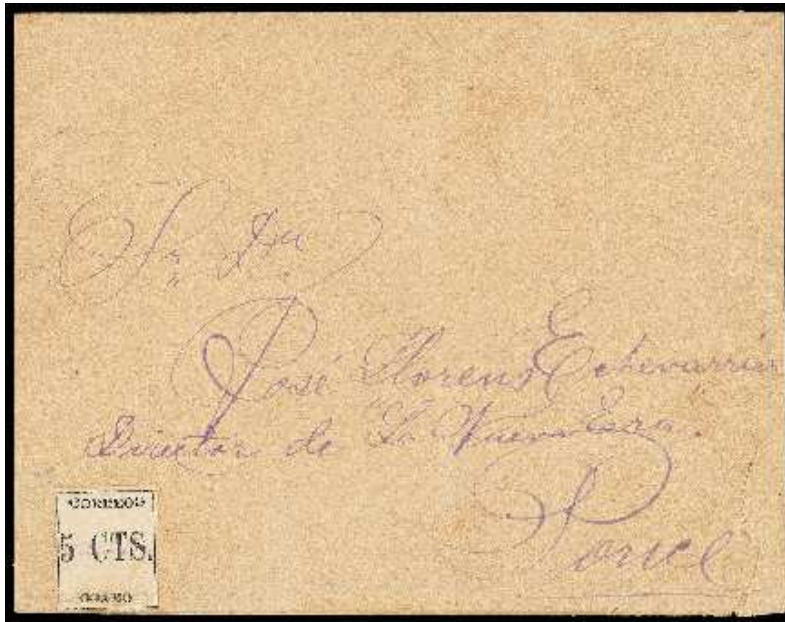 Sr. Dn.
José Llorens Echevarría
Director de "La Nueva Era".
Ponce
CORREOS
5 CTS.
COAMO